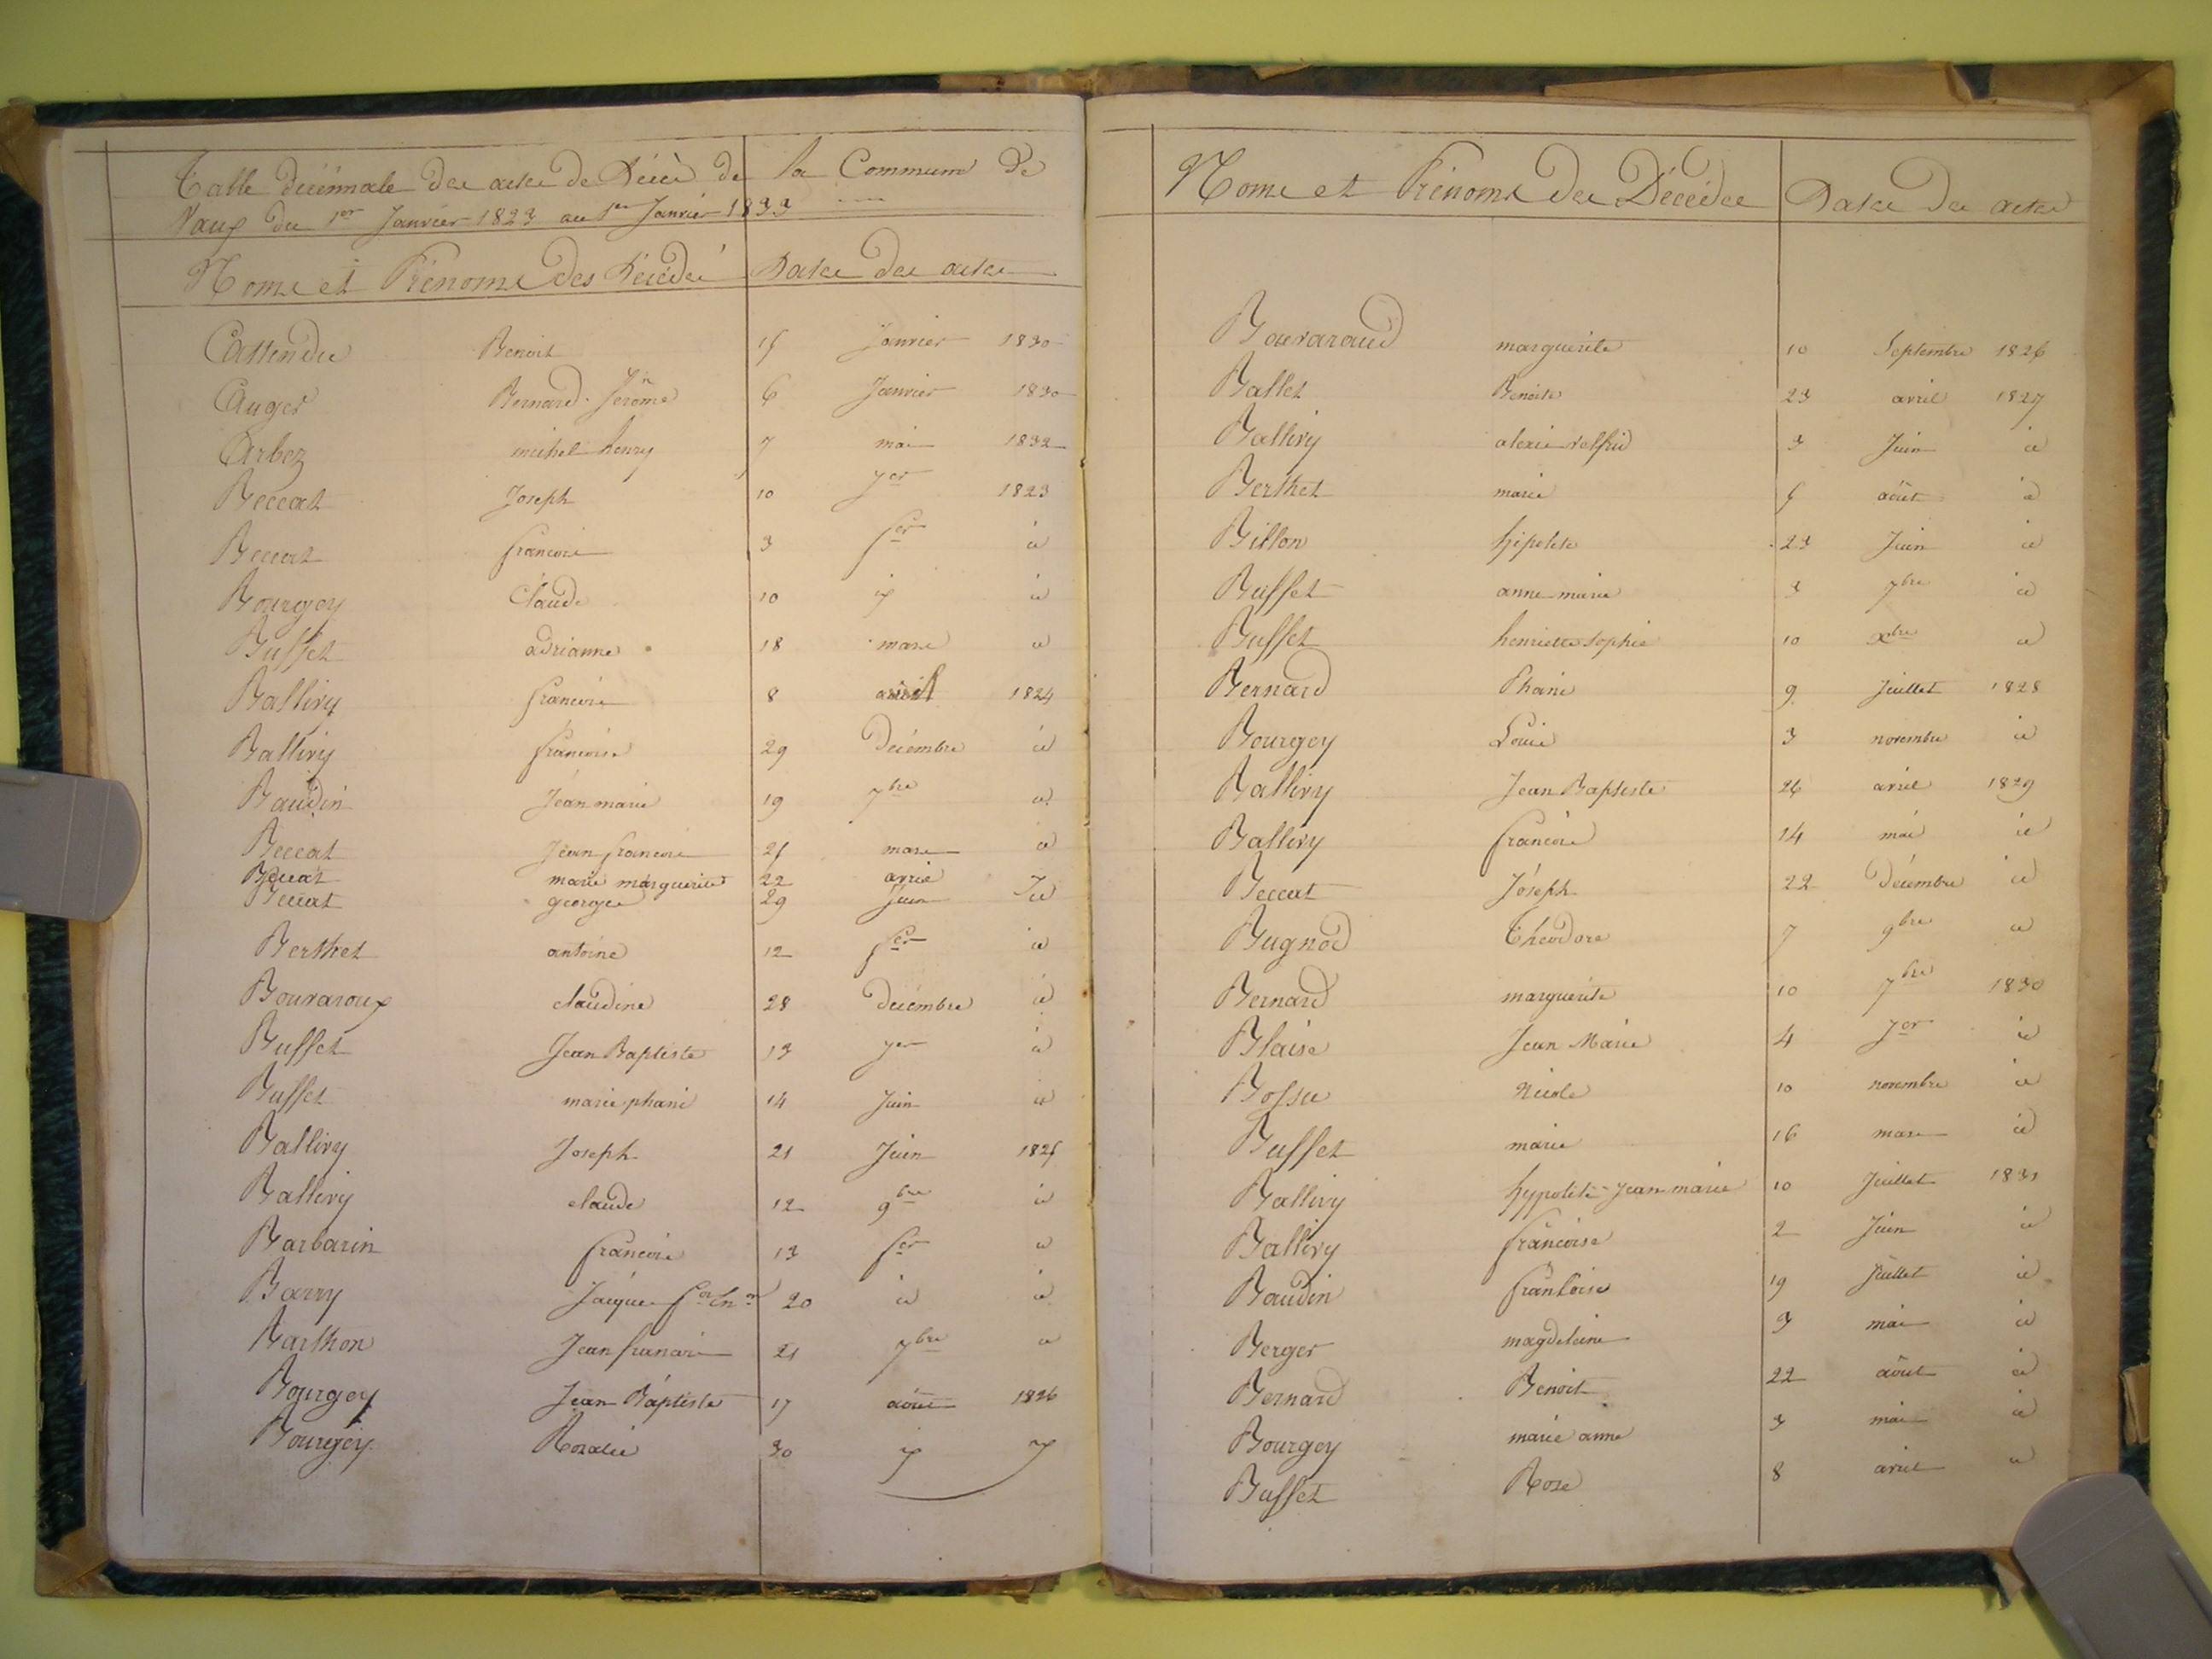 Table décennale des actes de Décès de la Commune de
Vaux du 1er Janvier 1823 au 1er Janvier 1833
Noms et Prénoms des Décédés Dates des actes
Benoit 15 Janvier 1830
Auger Bernard Jérôme 6 Janvier 1830
Arbez michel henry 7 mai 1832
Beccat Joseph 10 7er 1823
Beccat francois 3 fer id
Bourgey Claude 10 id
Buffet adrianne 18 mars id
Ballivy francois 8 avril 1824
Ballivy francoise 29 Décembre id
Baudin Jean marie 19 7bre id
Beccat Jean francois 25 mars id
Beccat marie marguerite 22 avril
Beccat georges 29 Juin id
Berthet antoine 12 fer id
Bouvaroux claudine 28 décembre id
Buffet Jean Baptiste 13 Jer id
Buffet marie phanie 14 Juin id
Ballivy Joseph 21 Juin 1825
Ballivy claude 12 9bre id
Barbarin francois 13 fer id
Barry Jacques 20 id id
Barthon Jean francois 21 7bre id
Bourgey Jean Baptiste 17 août 1826
Bourgey Rosalie 30
Noms et Prénoms des Décédés Dates des actes
Bouvaraud marguerite 10 Septembre 1826
Ballet Benoite 23 avril 1827
Ballivy alexis 3 Juin id
Berthet marie 5 août id
Billon hipolite 23 Juin id
Buffet anne marie 3 7bre id
Buffet henriette Sophie 10 Xbre id
Bernard Phanie 9 Juillet 1828
Bourgey Louis 3 novembre id
Ballivy Jean Baptiste 26 avril 1829
Ballivy francois 14 mai id
Beccat Joseph 22 Décembre id
Bugnod Théodore 7 9bre id
Bernard marguerite 10 7bre 1830
Blaise Jean Marie 4 Jer id
Bossu Nicole 10 novembre id
Buffet marie 16 mars id
Ballivy hypolite Jean marie 10 Juillet 1831
Ballivy francoise 2 Juin id
Baudin francoise 19 Juillet id
Berger magdeleine 3 mai id
Bernard Benoit 22 août id
Bourgey marie anne 3 mai id
Buffet Rose 8 avril id